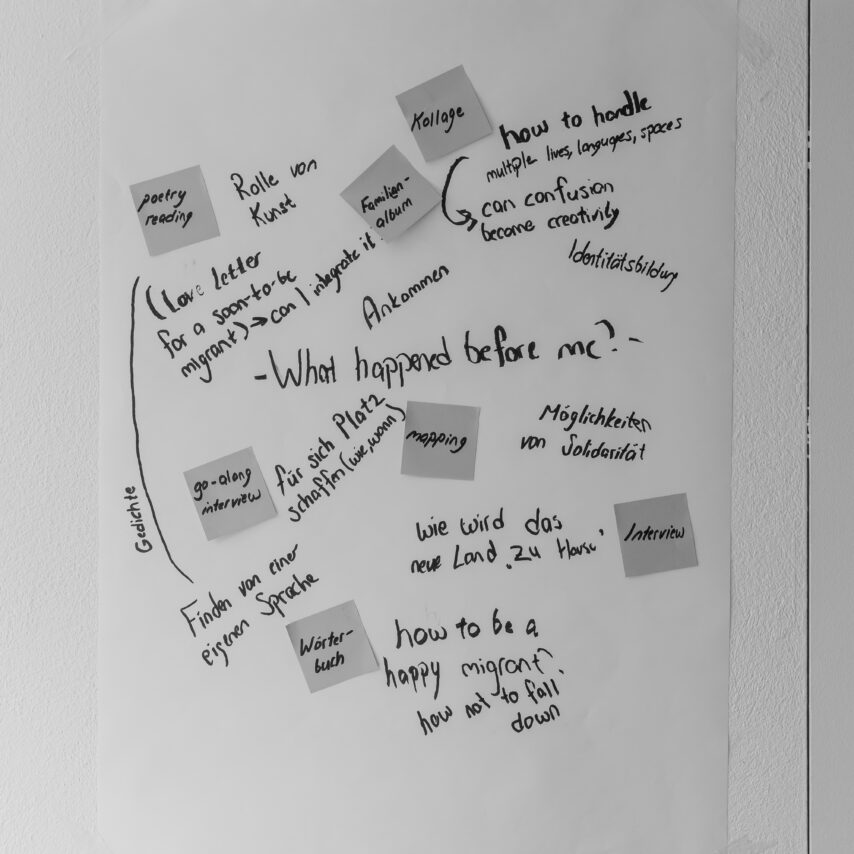 Kollage
how to handle
multiple lives, languges, spaces
can confusion
become creativity
Identitätsbildung
poetry
reading
Rolle von
Kunst
Familien-
album
(Love letter
for a soon-to-be
migrant) → can I integrate it
Ankommen
- What happened before me? -
für sich Platz
schaffen (wie, wann)
mapping
Möglichkeiten
von Solidarität
go-along
interview
Gedichte
wie wird das
neue Land „zu Hause“
Interview
Finden von einer
eigenen Sprache
Wörter-
buch
how to be a
happy migrant?
how not to fall
down